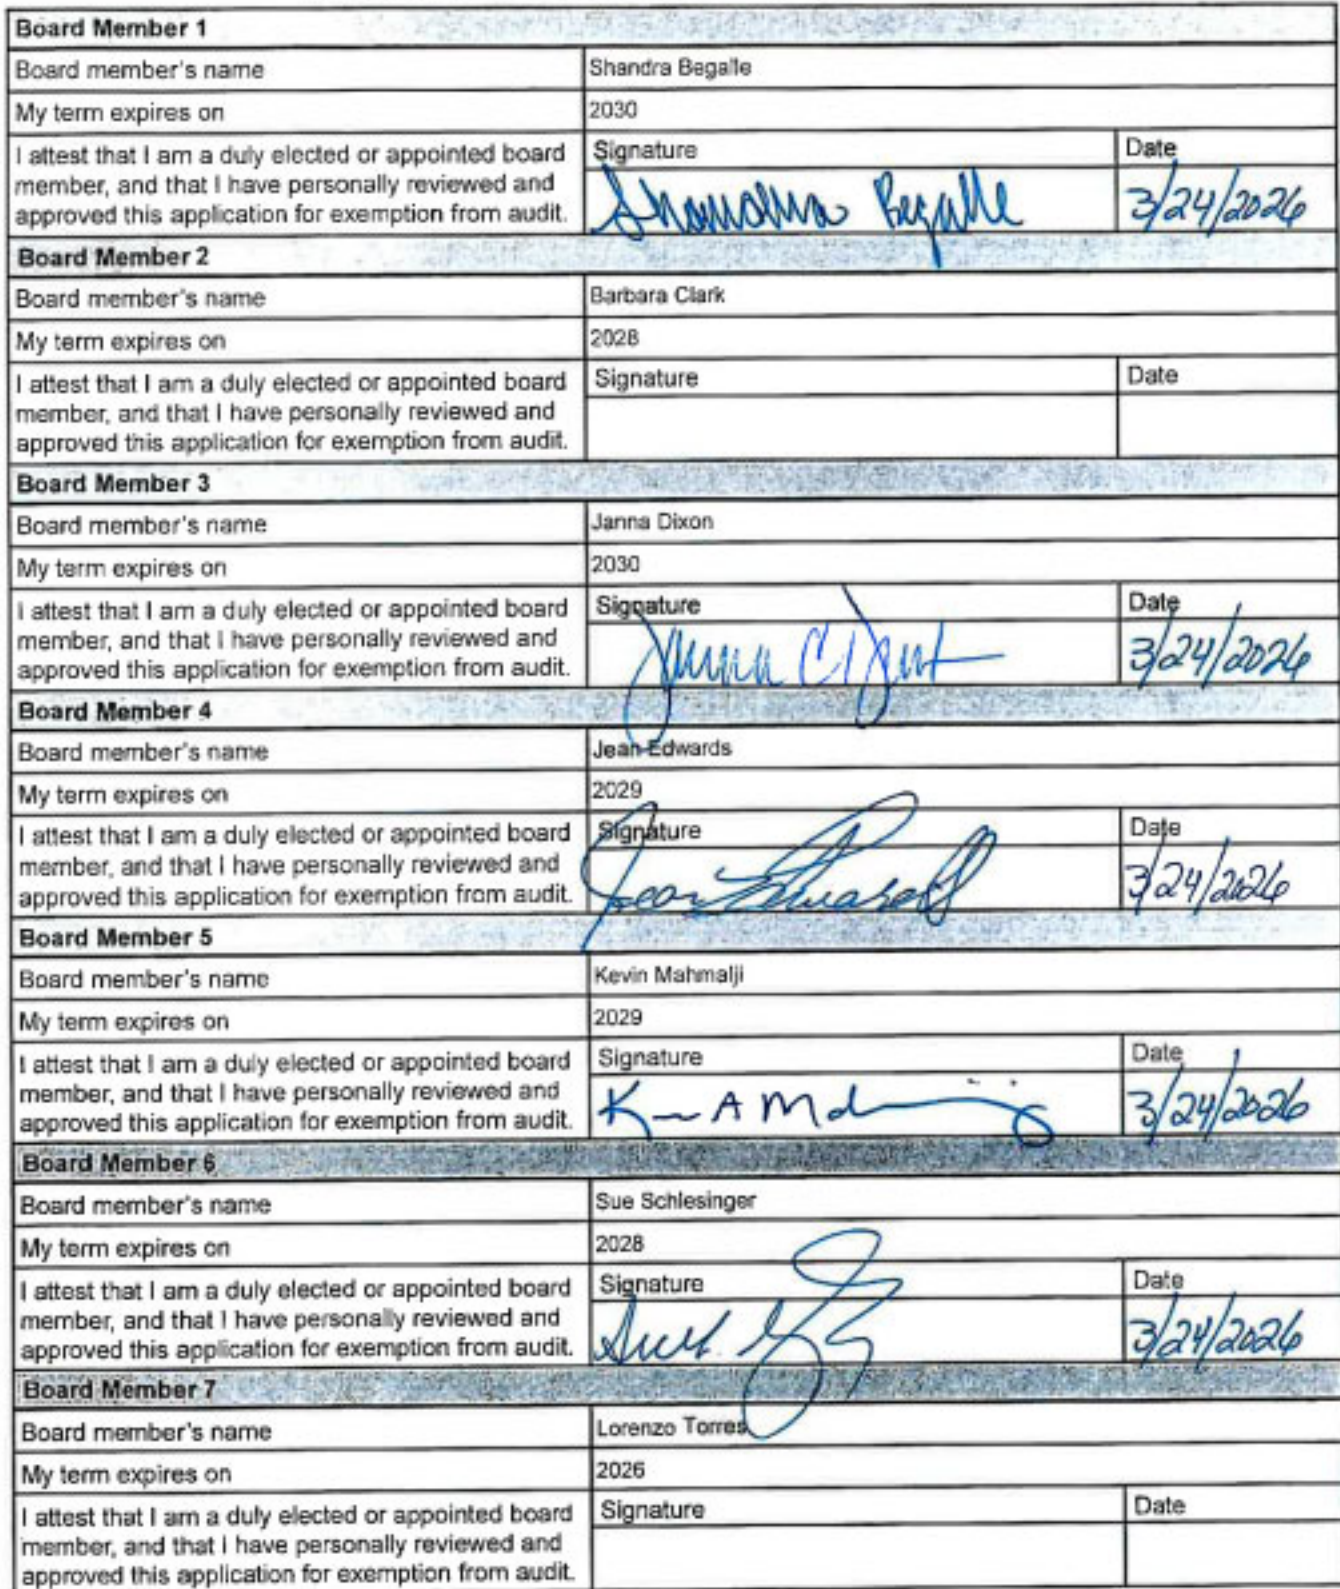 Board Member 1
Board member's name Shandra Begalle
My term expires on 2030
I attest that I am a duly elected or appointed board Signature Date
member, and that I have personally reviewed and
approved this application for exemption from audit. Shandra Begalle 3/24/2026
Board Member 2
Board member's name Barbara Clark
My term expires on 2028
I attest that I am a duly elected or appointed board Signature Date
member, and that I have personally reviewed and
approved this application for exemption from audit.
Board Member 3
Board member's name Janna Dixon
My term expires on 2030
I attest that I am a duly elected or appointed board Signature Date
member, and that I have personally reviewed and
approved this application for exemption from audit. Janna C 3/24/2026
Board Member 4
Board member's name Jean Edwards
My term expires on 2029
I attest that I am a duly elected or appointed board Signature Date
member, and that I have personally reviewed and
approved this application for exemption from audit. Jean Edwards 3/24/2026
Board Member 5
Board member's name Kevin Mahmalji
My term expires on 2029
I attest that I am a duly elected or appointed board Signature Date
member, and that I have personally reviewed and
approved this application for exemption from audit. K A 3/24/2026
Board Member 6
Board member's name Sue Schlesinger
My term expires on 2028
I attest that I am a duly elected or appointed board Signature Date
member, and that I have personally reviewed and
approved this application for exemption from audit. 3/24/2026
Board Member 7
Board member's name Lorenzo Torres
My term expires on 2026
I attest that I am a duly elected or appointed board Signature Date
member, and that I have personally reviewed and
approved this application for exemption from audit.